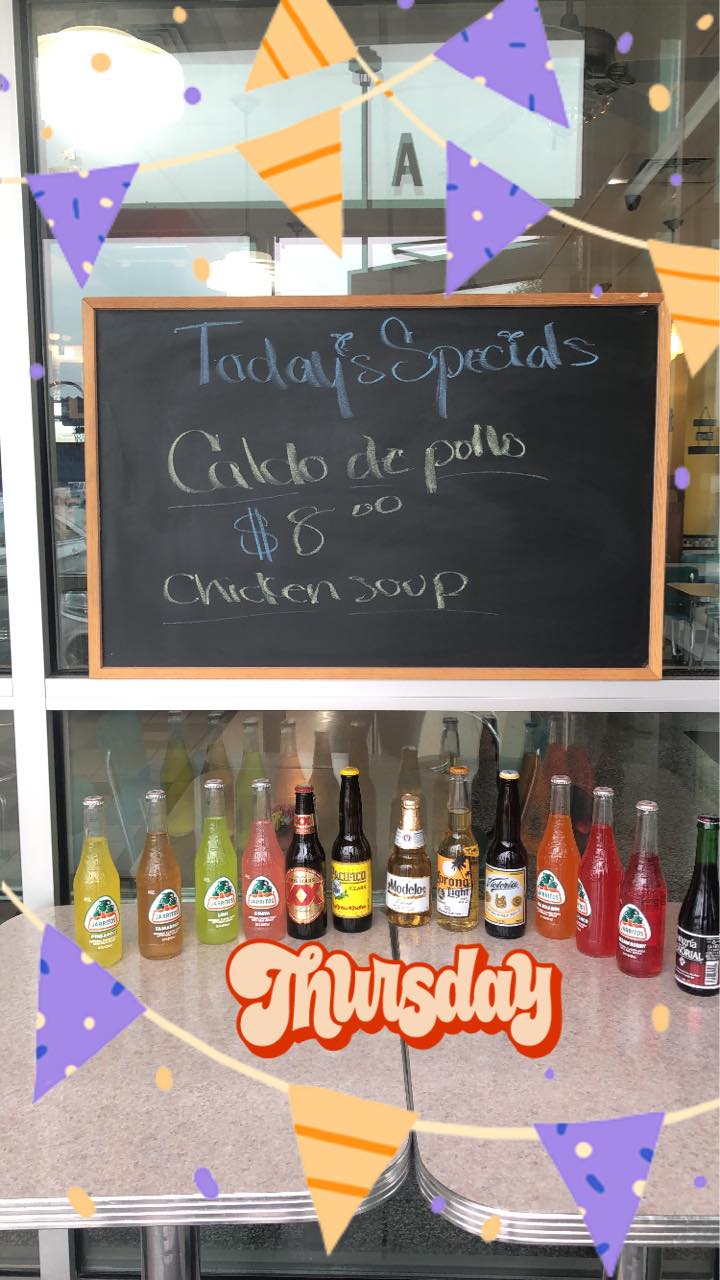 A
Today's Specials
Caldo de pollo
$8.00
Chicken soup
JARRITOS
JARRITOS
TAMARIND
JARRITOS
LIME
JARRITOS
GUAVA
XX
PACIFICO
CLARA
Modelo
Corona
Light
Victoria
JARRITOS
MANDARIN
JARRITOS
Sangría
SEÑORIAL
Thursday